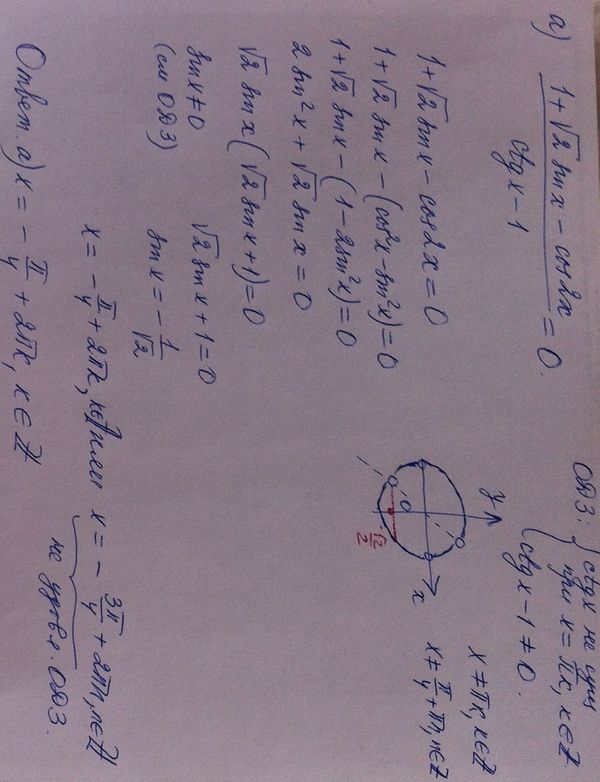 а) (1+√2 sin x − cos2x)/(ctg x − 1) = 0.
ОДЗ: { ctg x не сущ
при x = πk, k∈Z.
ctg x − 1 ≠ 0.
x ≠ πk, k∈Z
x ≠ π/4 + πn, n∈Z
1+√2 sin x − cos2x = 0
1+√2 sin x − (cos²x − sin²x) = 0
1+√2 sin x − (1 − 2sin²x) = 0
2 sin²x + √2 sin x = 0
√2 sin x (√2 sin x + 1) = 0
sin x ≠ 0
(см ОДЗ)
√2 sin x + 1 = 0
sin x = − 1/√2
x = − π/4 + 2πk, k∈Z или x = − 3π/4 + 2πn, n∈Z
не удовл. ОДЗ.
y
x
0
−√2/2
Ответ. а) x = − π/4 + 2πk, k∈Z